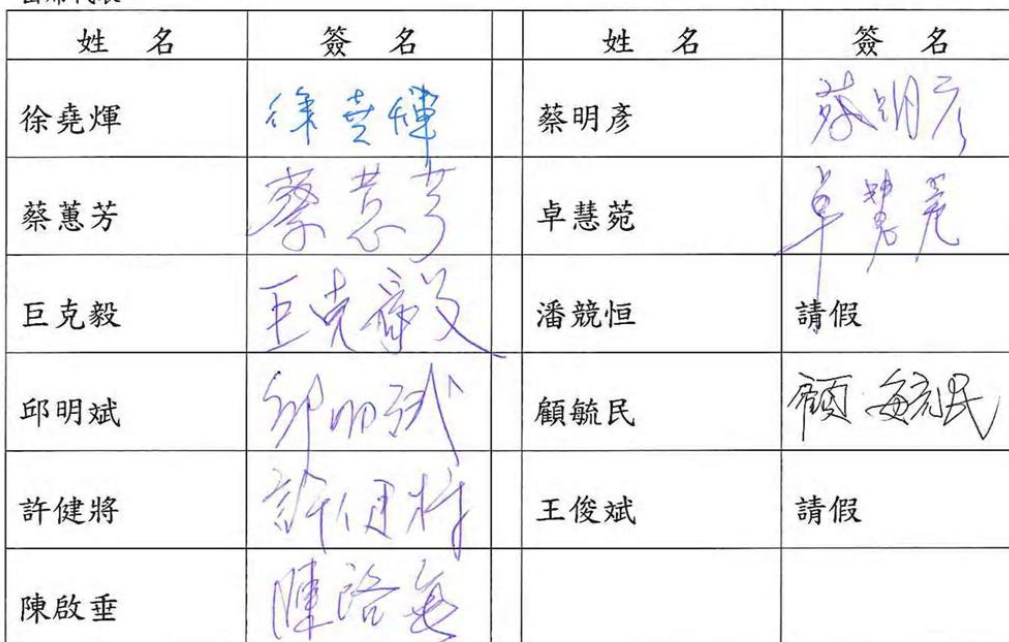 姓 名 簽 名 姓 名 簽 名
徐堯煇 徐堯煇 蔡明彥 蔡明彥
蔡蕙芳 蔡蕙芳 卓慧菀 卓慧菀
巨克毅 巨克毅 潘競恒 請假
邱明斌 邱明斌 顧毓民 顧毓民
許健將 許健將 王俊斌 請假
陳啟垂 陳啟垂